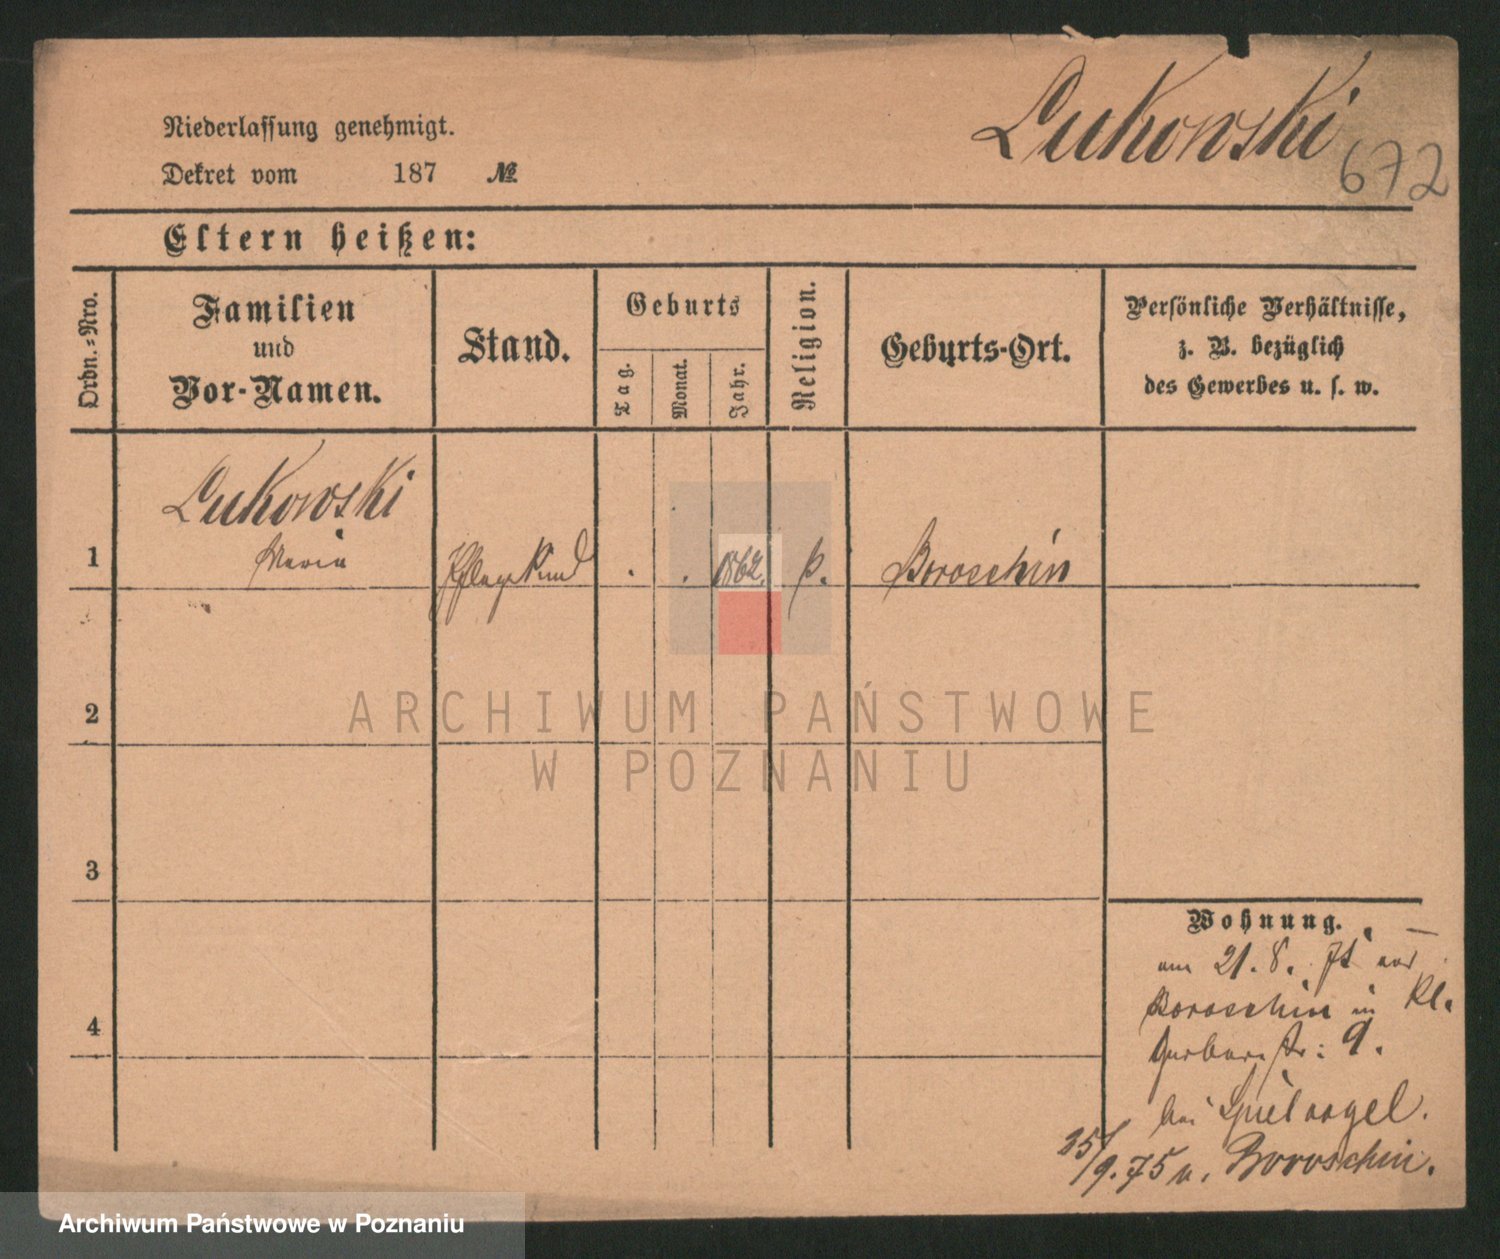 Lukowski
672
Niederlassung genehmigt.
Dekret vom 187 №
Eltern heißen:
Ordn.-Nro.
Familien
und
Vor-Namen.
Stand.
Geburts
Tag.
Monat.
Jahr.
Religion.
Geburts-Ort.
Persönliche Verhältnisse,
z. B. bezüglich
des Gewerbes u. s. w.
Lukowski
1 Maria Pflegekind . . 1862. k. Boroschin
2
3
4
Wohnung.
am 21. 8. 74 aus
Boroschin in Kl.
Gerberstr: 9.
bei Spielvogel.
25/9.75 n. Boroschin.
ARCHIWUM PAŃSTWOWE
W POZNANIU
Archiwum Państwowe w Poznaniu